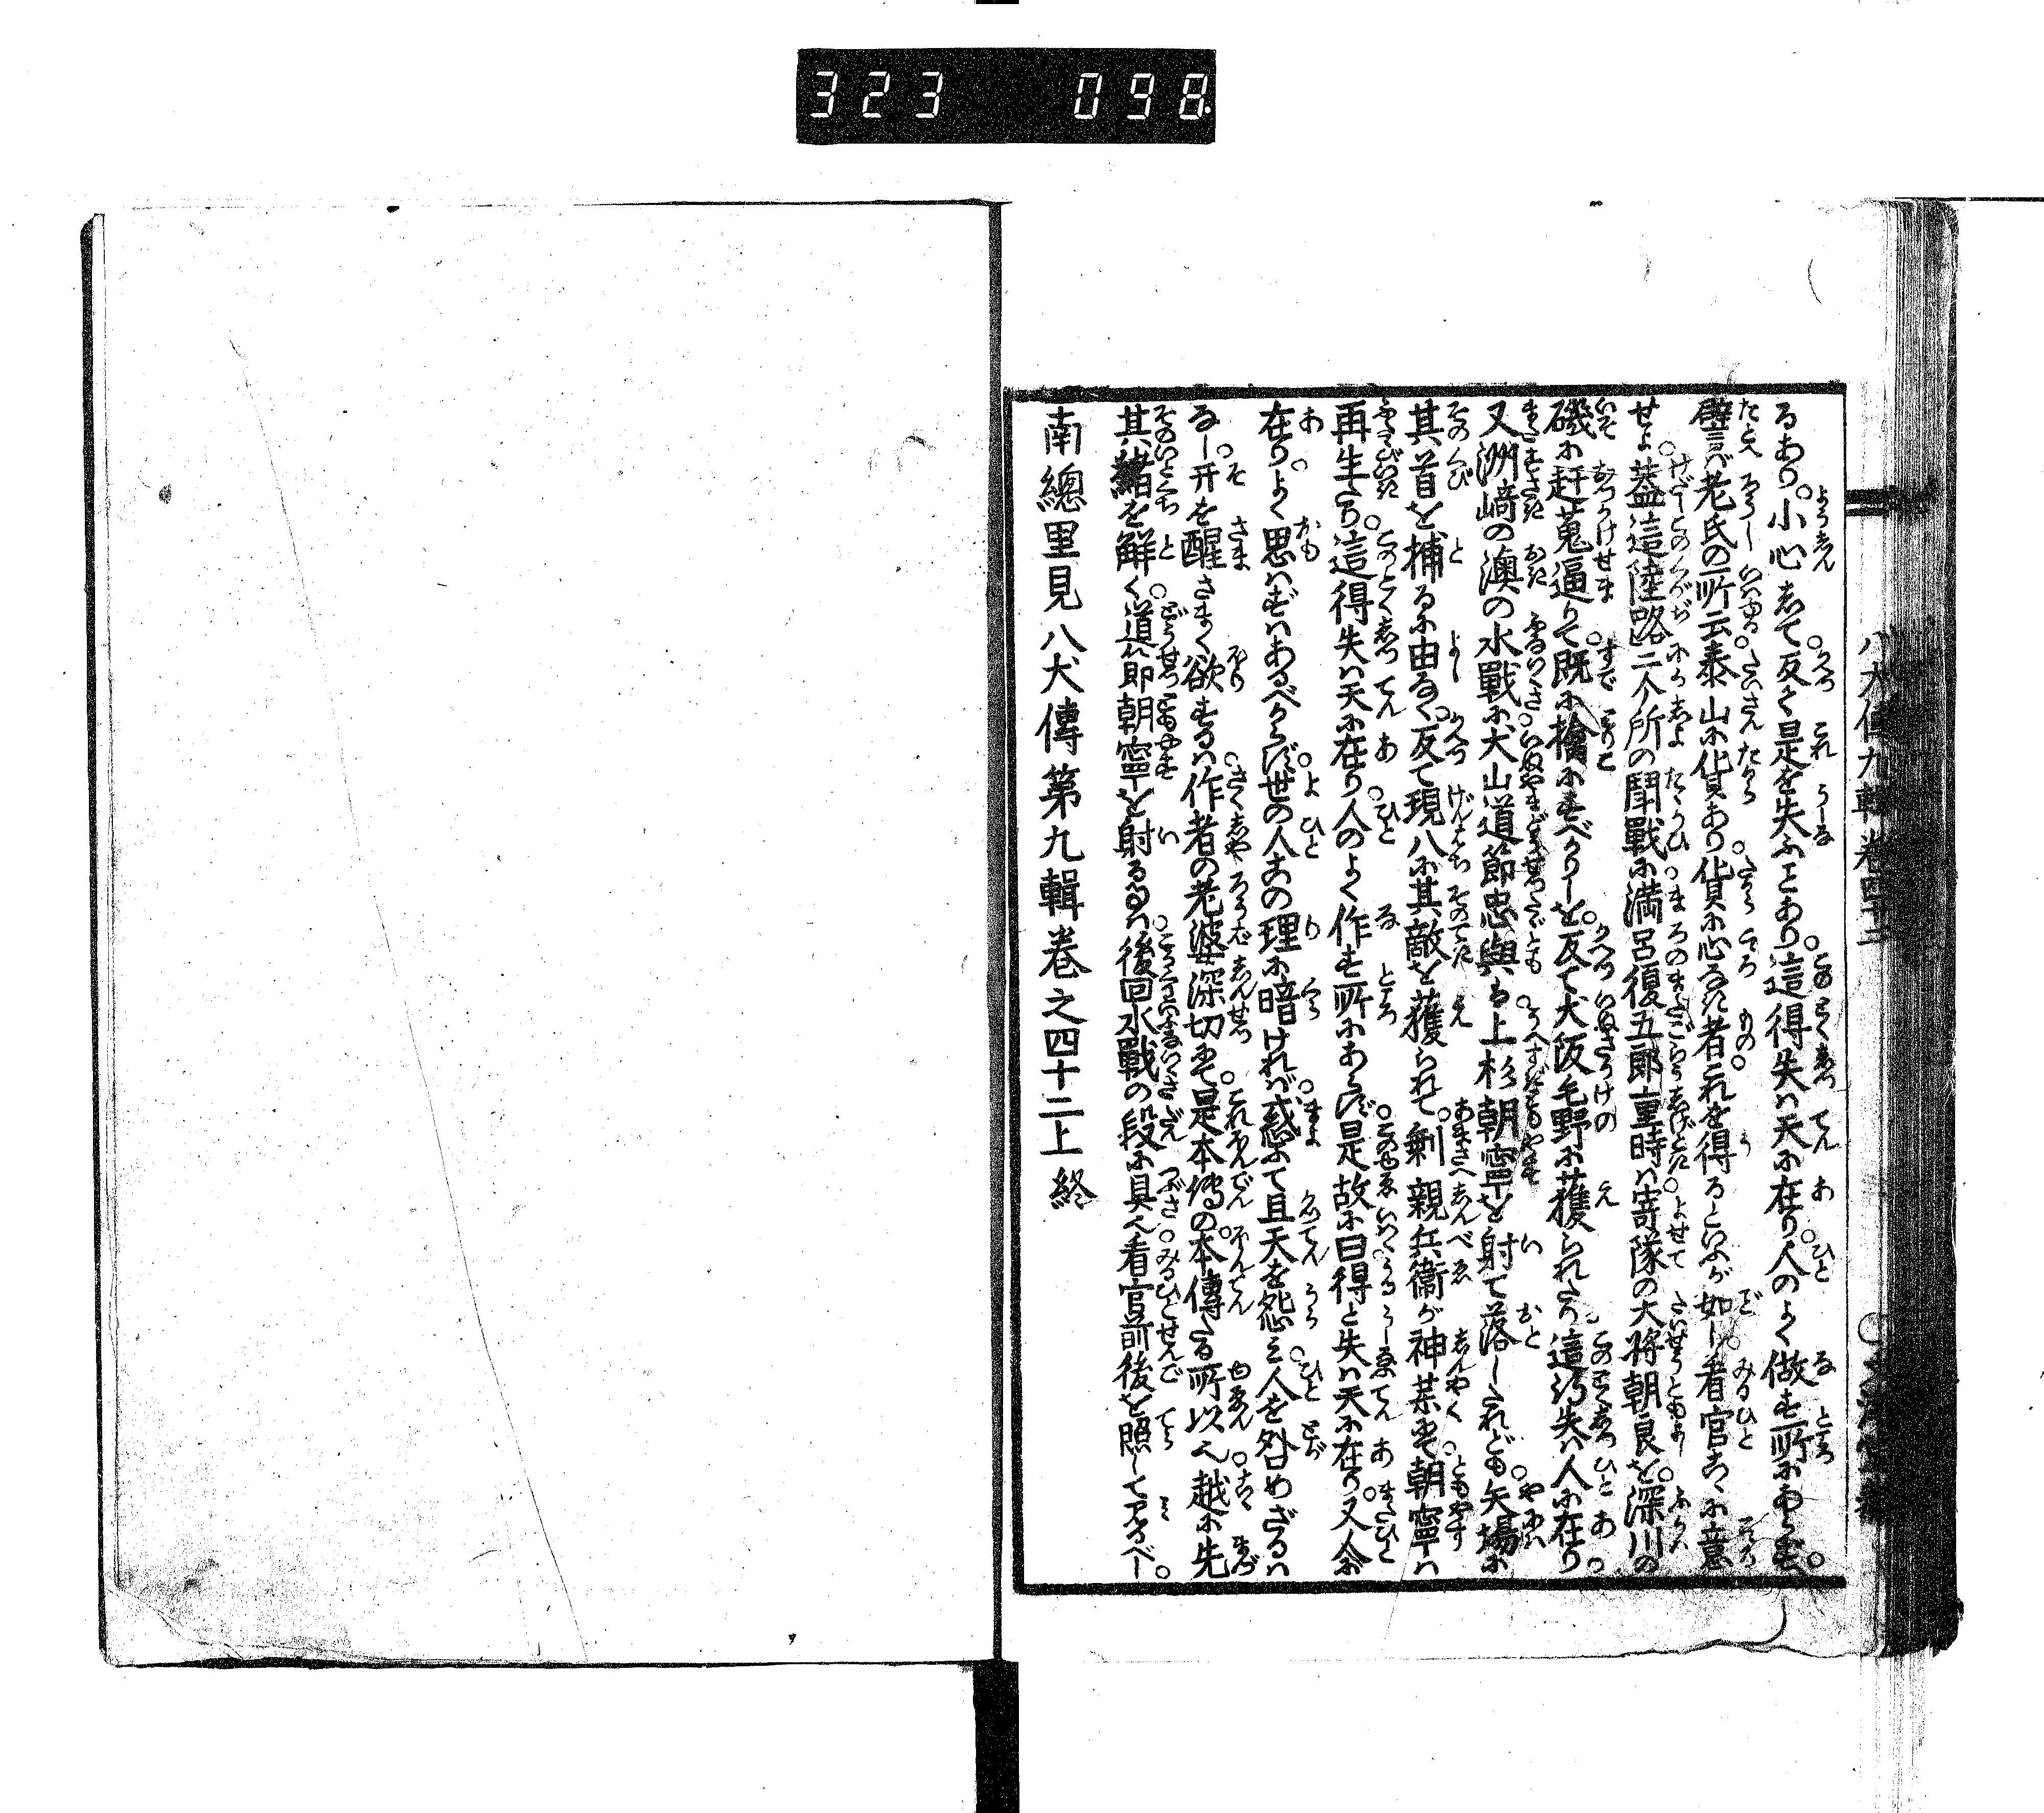 323 098
るあり。小心して。反て是を失ふことあり。這得失ハ天に在り。人のよく做す所にあらず。
譬ば老氏の所云。泰山に貨あり。貨に心なき者。これを得るといふが如し。看官こゝに意
せよ。蓋這陸路二个所の鬪戰に。満呂復五郎重時ハ。寄隊の大將朝良を。深川の
磯に赶蒐逼りて。既に檎にすべかりしを。反て犬阪毛野に獲られたり。這得失ハ人に在り。
又洲﨑の澳の水戰に。犬山道節忠與ハ。上杉朝寧を射て落しゝかども。矢場に
其首を捕るに由なく。反て現八に其敵を獲られて。剰親兵衞が神薬にて。朝寧ハ
再生たり。這得失ハ天に在り。人のよく作す所にあらず。是故に曰。得と失ハ天に在り。又人に
在り。よく思ハずハあるべからず。世の人この理に暗ければ。惑ふて且天を怨み。人を咎めざるハ
なし。开を醒さまく欲するハ。作者の老婆深切にて。是本傳の本傳たる所以也。越に先
其緒を觧く。道節朝寧を射る事ハ。後回水戰の段に具也。看官前後を照して見るべし。
南總里見八犬傳第九輯卷之四十二上終
八犬傳九輯卷四十二